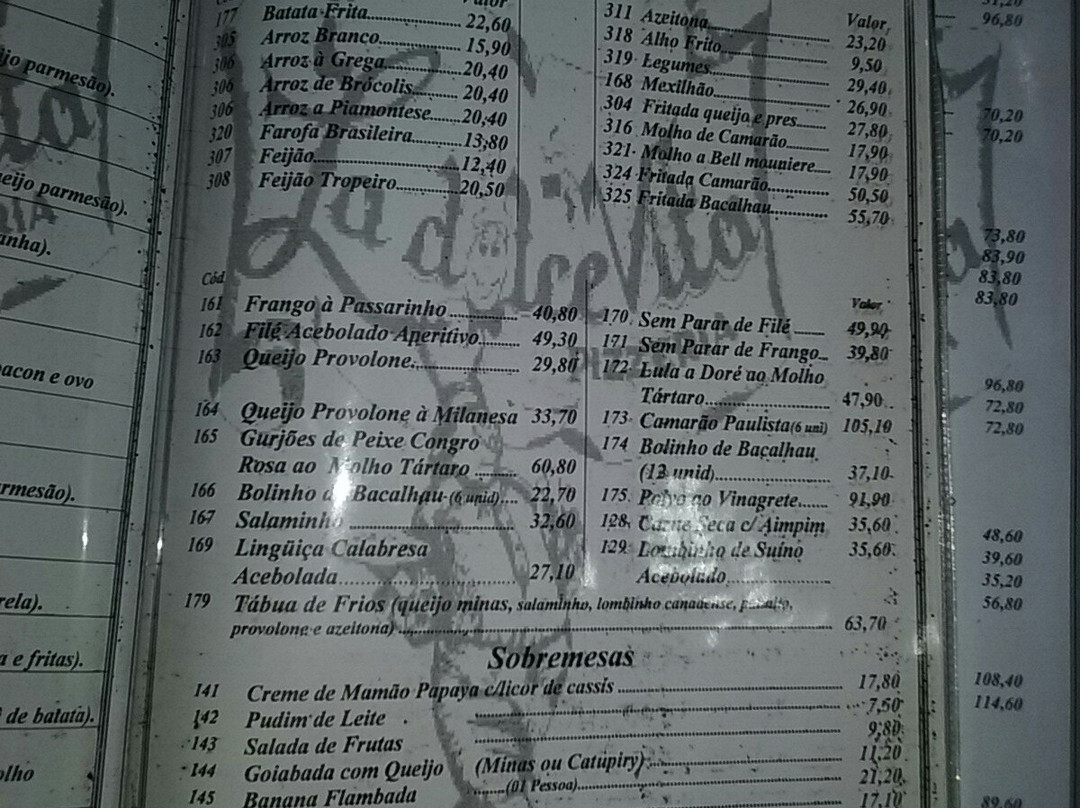 ijo parmesão).
eijo parmesão).
anha).
acon e ovo
rmesão).
rela).
a e fritas).
de batata).
olho
177 Batata Frita 22,60
305 Arroz Branco 15,90
306 Arroz à Grega 20,40
306 Arroz de Brócolis 20,40
306 Arroz a Piamontese 20,40
320 Farofa Brasileira 13,80
307 Feijão 12,40
308 Feijão Tropeiro 20,50
Valor
311 Azeitona 23,20
318 Alho Frito 9,50
319 Legumes 29,40
168 Mexilhão 26,90
304 Fritada queijo e pres 27,80
316 Molho de Camarão 17,90
321 Molho a Bell mouniere 17,90
324 Fritada Camarão 50,50
325 Fritada Bacalhau 55,70
La dolce Vita
PIZZARIA
Cód
161 Frango à Passarinho 40,80
162 Filé Acebolado Aperitivo 49,30
163 Queijo Provolone 29,80
164 Queijo Provolone à Milanesa 33,70
165 Gurjões de Peixe Congro
Rosa ao Molho Tártaro 60,80
166 Bolinho de Bacalhau (6 unid) 22,70
167 Salaminho 32,60
169 Lingüiça Calabresa
Acebolada 27,10
Valor
170 Sem Parar de Filé 49,90
171 Sem Parar de Frango 39,80
172 Lula a Doré ao Molho
Tártaro 47,90
173 Camarão Paulista (6 uni) 105,10
174 Bolinho de Bacalhau
(12 unid) 37,10
175 Polvo ao Vinagrete 91,90
128 Carne Seca c/ Aimpim 35,60
129 Lombinho de Suino 35,60
Acebolado
179 Tábua de Frios (queijo minas, salaminho, lombinho canadense, presunto,
provolone e azeitona) 63,70
Sobremesas
141 Creme de Mamão Papaya c/licor de cassis 17,80
142 Pudim de Leite 7,50
143 Salada de Frutas 9,80
144 Goiabada com Queijo (Minas ou Catupiry) 11,20
145 Banana Flambada (01 Pessoa) 21,20
17,10
96,80
70,20
70,20
73,80
83,90
83,80
83,80
96,80
72,80
72,80
48,60
39,60
35,20
56,80
108,40
114,60
89,60